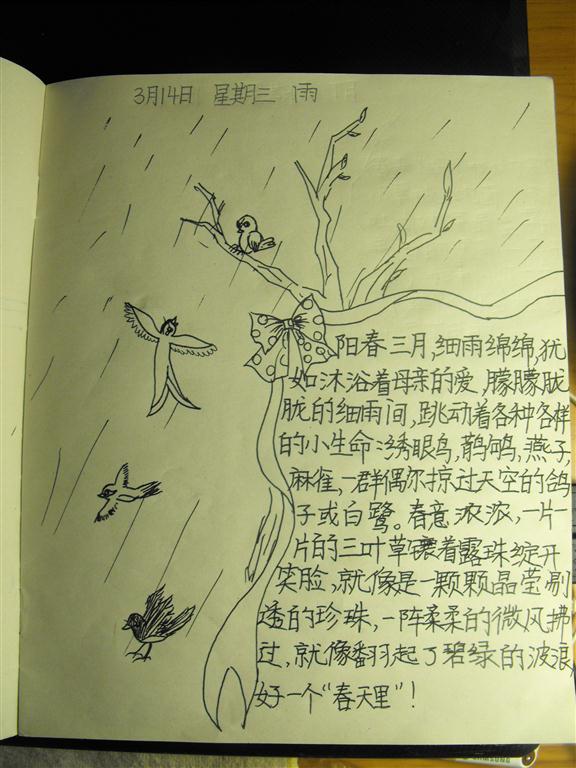 3月14日 星期三 雨
阳春三月,细雨绵绵,犹
如沐浴着母亲的爱,朦朦胧
胧的细雨间,跳动着各种各样
的小生命:绣眼鸟,鹡鸰,燕子,
麻雀,一群偶尔掠过天空的鸽
子或白鹭。春意浓浓,一片一
片的三叶草镶着露珠绽开
笑脸,就像是一颗颗晶莹剔
透的珍珠,一阵柔柔的微风拂
过,就像翻起了碧绿的波浪,
好一个“春天里”!